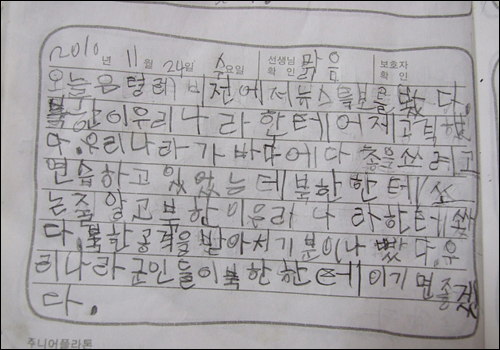 2010년 11월 24일 수요일 선생님 확인 맑음 보호자 확인
오늘은 털레비전에저 뉴스를 보를 봤다.
북한이 우리나라한테 어제 공격했
다. 우리나라가 바다에다 총을 쏘려고
연습하고 있었는데 북한한테 쏘
는줄 알고 북한이 우리나라한테 쐈
다. 북한 공격을 받아서 기분이 나빴다. 우
리나라 군인들이 북한한테 이기면 좋겠
다.
주니어플라톤